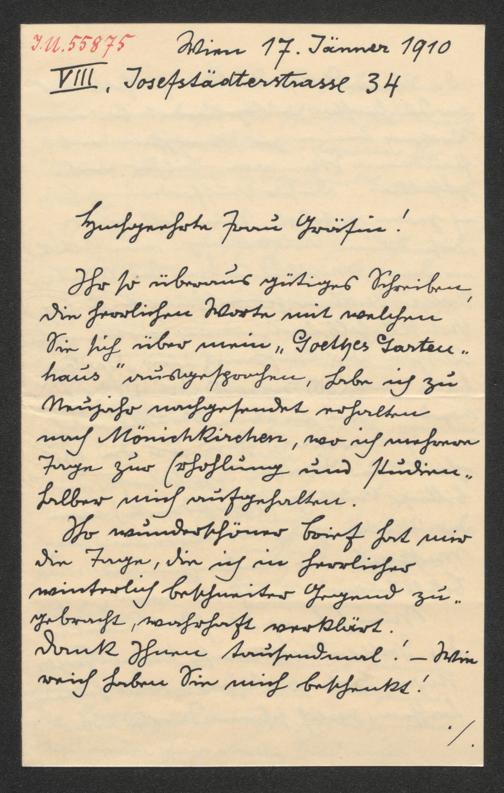 I.N.55875
Wien 17. Jänner 1910
VIII, Josefstädterstrasse 34
Hochgeehrte Frau Gräfin!
Ihr so überaus gütiges Schreiben,
die herrlichen Worte mit welchen
Sie sich über mein „Goethes Garten„
haus" ausgesprochen, habe ich zu
Neujahr nachgesendet erhalten
nach Mönichkirchen, wo ich mehrere
Tage zur Erhohlung und studien„
halber mich aufgehalten.
Ihr wunderschöner Brief hat mir
die Tage, die ich in herrlicher
winterlich beschneiter Gegend zu„
gebracht, wahrhaft verklärt.
Dank Ihnen tausendmal! – Wie
reich haben Sie mich beschenkt!
./.